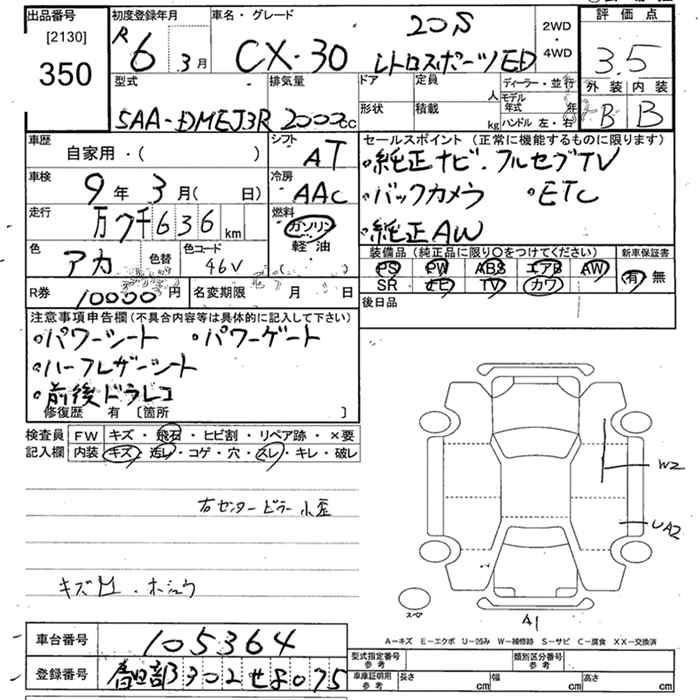 出品番号 初度登録年月 車名・グレード 評価点
[2130] R 6年 3月 CX-30 20S 2WD・4WD 3.5
350 レトロスポーツED 外装 内装
型式 排気量 ドア 定員 人 ディーラー・並行 B B
5AA-DMEJ3R 2000cc 形状 積載 kg モデル年式 年 ハンドル 左・右
車歴 シフト セールスポイント (正常に機能するものに限ります)
自家用・( ) AT ・純正ナビ・フルセグTV
車検 冷房 ・バックカメラ ・ETC
9年 3月( 日) AAC ・純正AW
走行 燃料
万7千636km ガソリン 軽油
色 色替 色コード 装備品 (純正品に限り○をつけてください) 新車保証書
アカ 46V PS PW ABS エアB AW 有・無
SR ナビ TV カワ
R券 10000円 名変期限 月 日 後日品
注意事項申告欄 (不具合内容等は具体的に記入して下さい)
・パワーシート ・パワーゲート
・ハーフレザーシート
・前後ドラレコ
修復歴 有 [箇所 ]
検査員 FW キズ・飛石・ヒビ割・リペア跡・×要
記入欄 内装 キズ・汚レ・コゲ・穴・スレ・キレ・破レ
W2
右センターピラー小歪
UA2
キズ
スペア
A1
A-キズ E-エクボ U-凹み W-補修跡 S-サビ C-腐食 XX-交換済
車台番号 105364 型式指定番号 参考 類別区分番号 参考
登録番号 春日部302せ8075 車庫証明用 参考 長さ cm 幅 cm 高さ cm